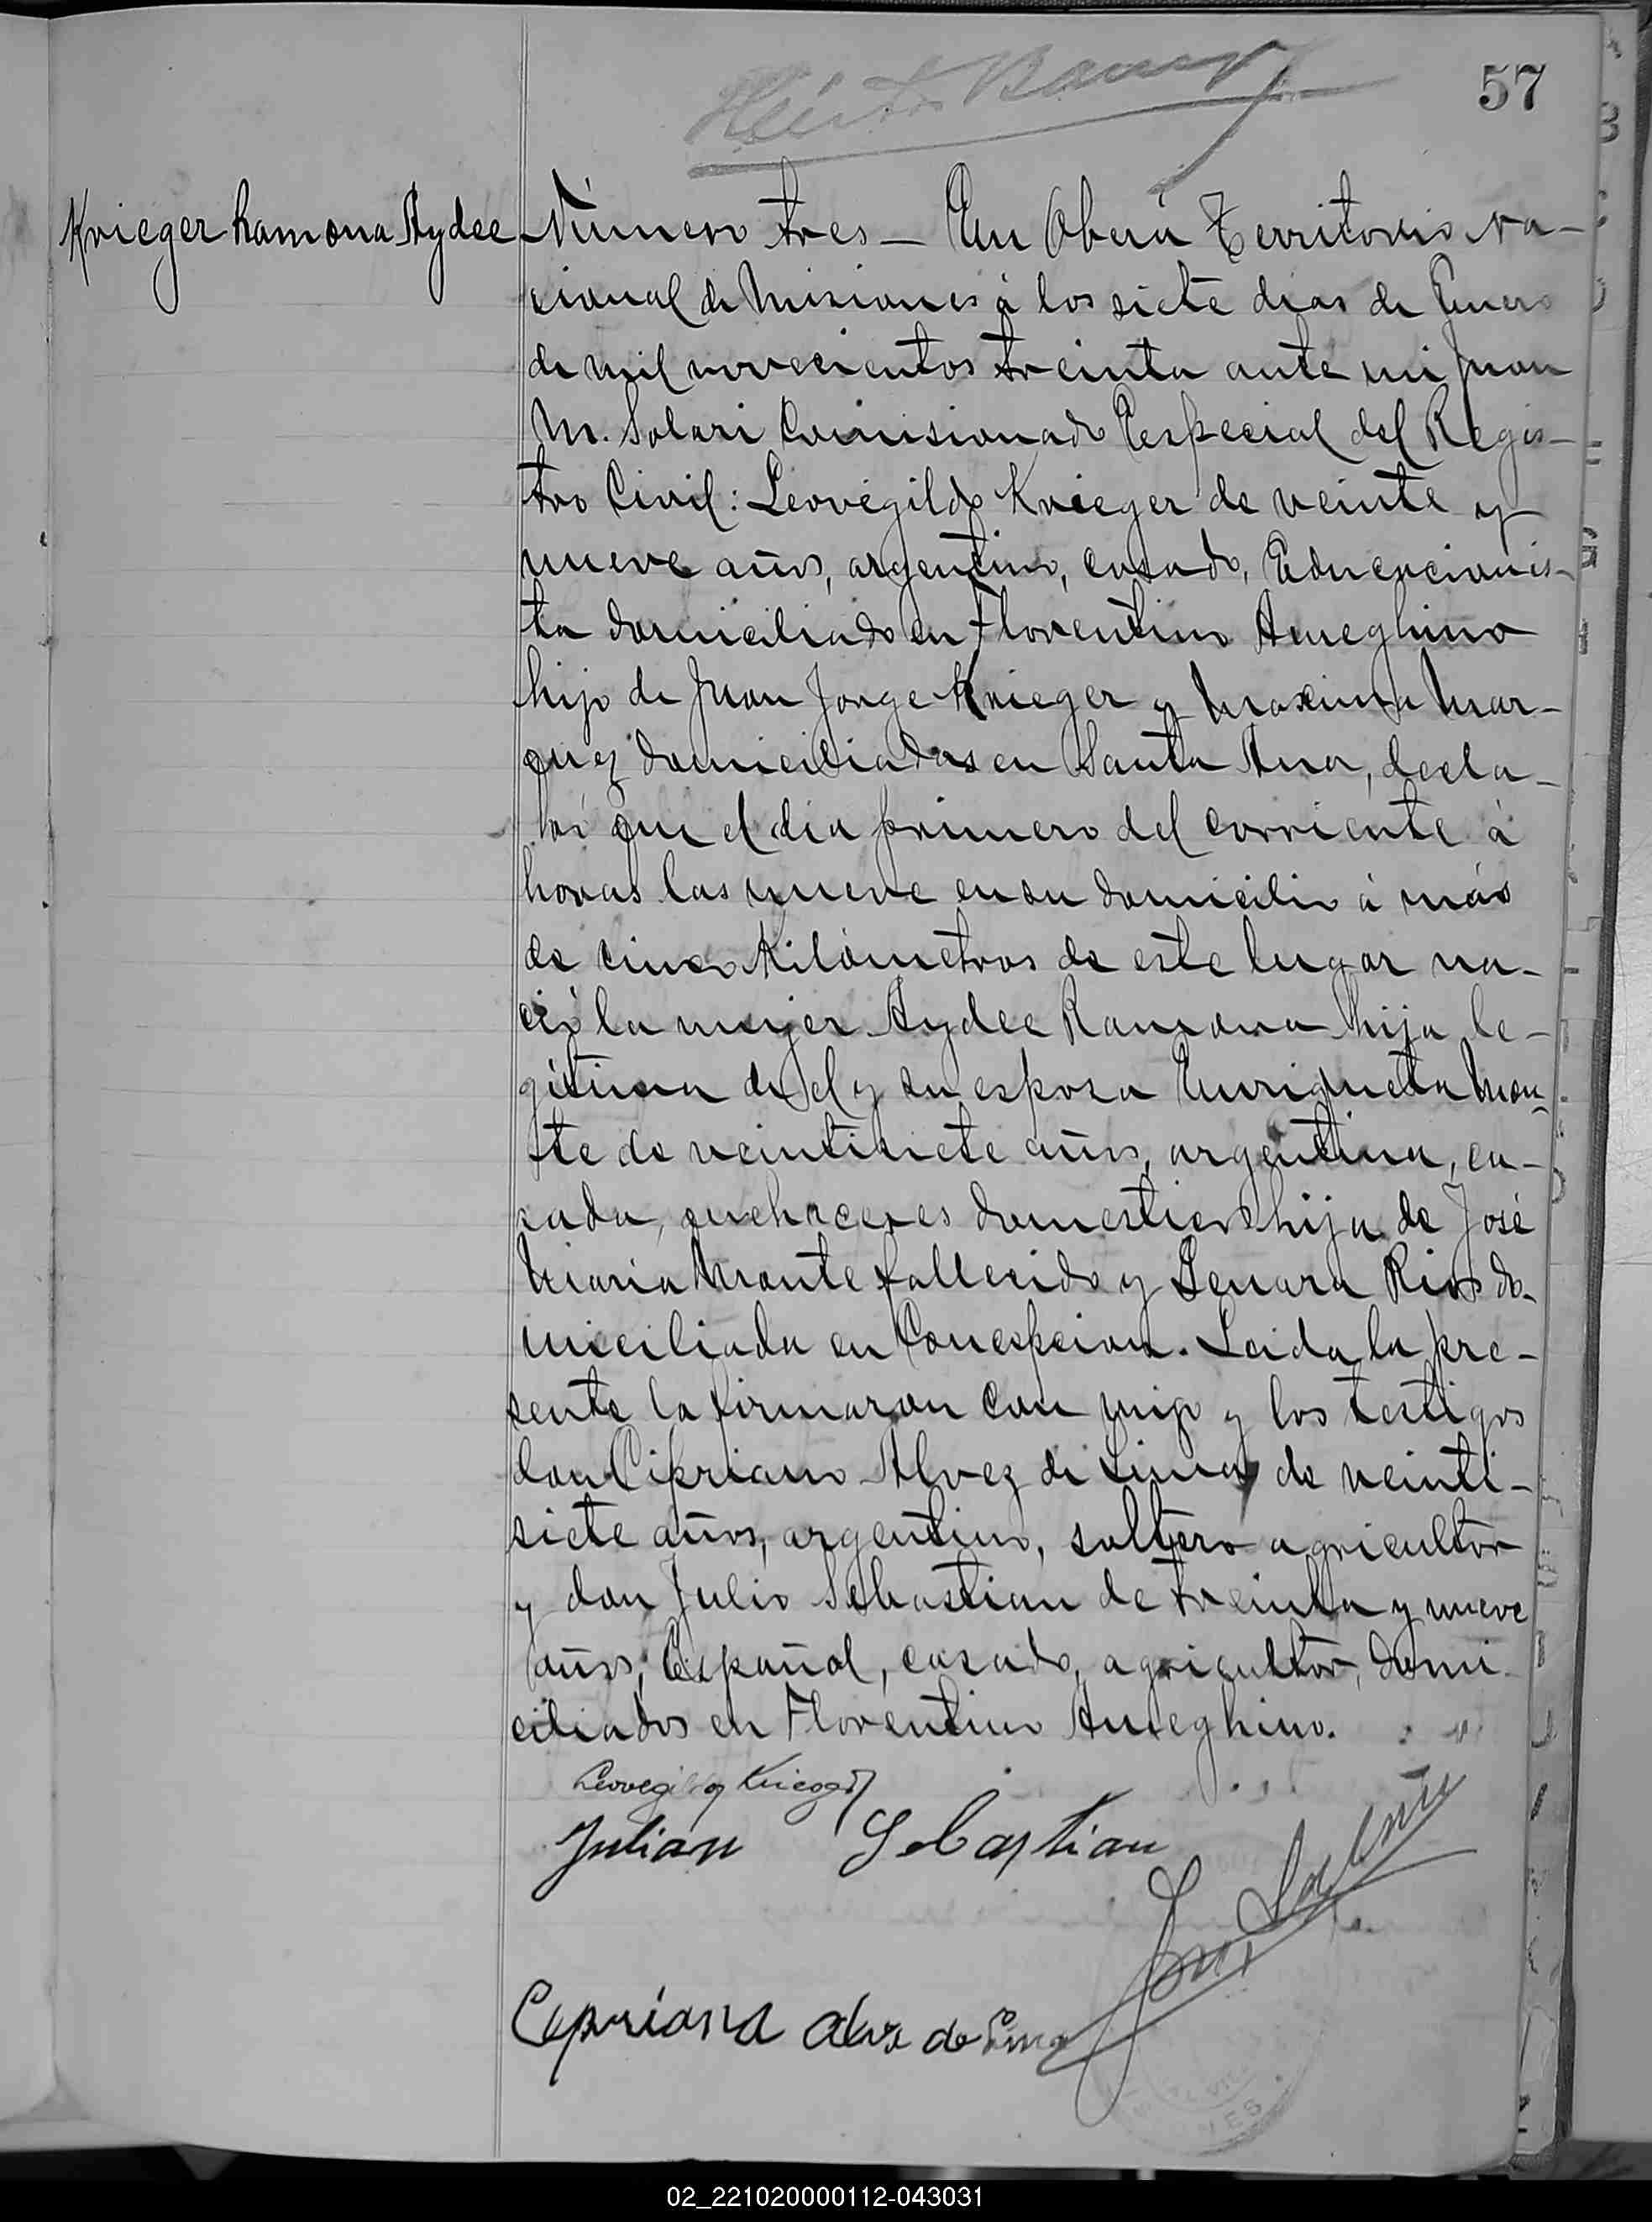 57
Krieger Ramona Aydee
Número tres — En Oberá Territorio Na-
cional de Misiones á los siete dias de Enero
de mil novecientos treinta ante mi Juan
M. Solari Comisionado Especial del Regis-
tro Civil: Leovegildo Krieger de veinte y
nueve años, argentino, casado, Educacionis-
ta domiciliado en Florentino Ameghino
hijo de Juan Jorge Krieger y Maxima Mar-
quez domiciliados en Santa Ana, decla-
ró que el dia primero del corriente á
horas las nueve en su domicilio á más
de cinco Kilómetros de este lugar na-
ció la mujer Aydee Ramona hija le-
gítima de el y su esposa Enriqueta Mon-
te de veintisiete años, argentina, ca-
sada, quehaceres domesticos hija de José
Maria Monte fallecido y Genara Rios do-
miciliada en Concepcion. Leida la pre-
sente la firmaron con migo y los testigos
don Cipriano Alvez de Lima de veinti-
siete años, argentino, soltero agricultor
y don Julio Sebastian de treinta y nueve
años, Español, casado, agricultor, domi-
ciliados en Florentino Ameghino.
Krieger
Julian Sebastian
Cipriano de Lima
02_221020000112-043031